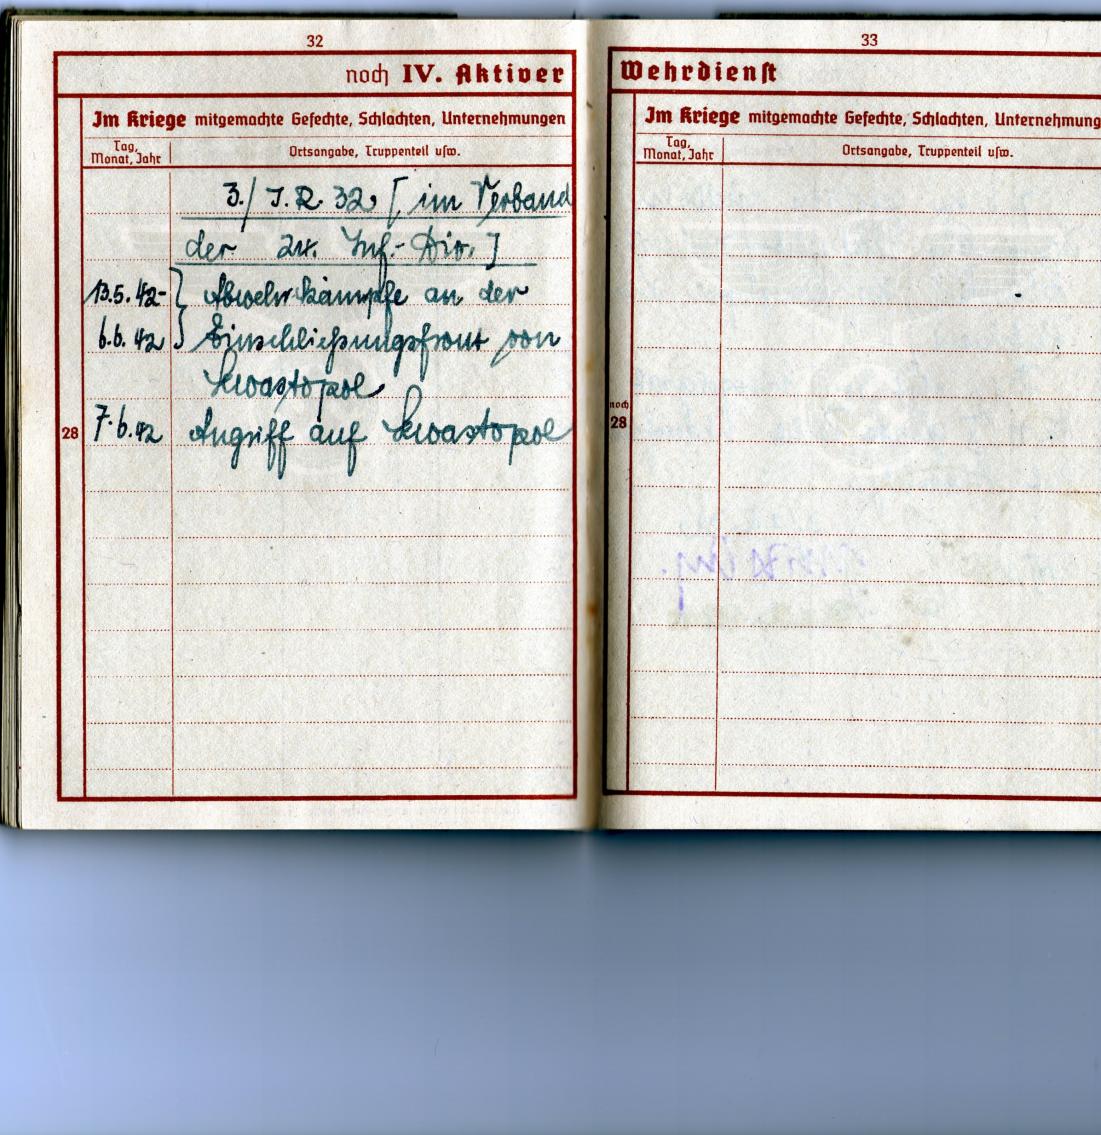 32
noch IV. Aktiver
Im Kriege mitgemachte Gefechte, Schlachten, Unternehmungen
Tag,
Monat, Jahr
Ortsangabe, Truppenteil usw.
3./ I.R. 32, [ im Verband
der 24. Inf.-Div. ]
13.5.42- } Abwehrkämpfe an der
6.6.42 } Einschließungsfront von
Sewastopol
28 7.6.42 Angriff auf Sewastopol
33
Wehrdienst
Im Kriege mitgemachte Gefechte, Schlachten, Unternehmung
Tag,
Monat, Jahr
Ortsangabe, Truppenteil usw.
noch
28